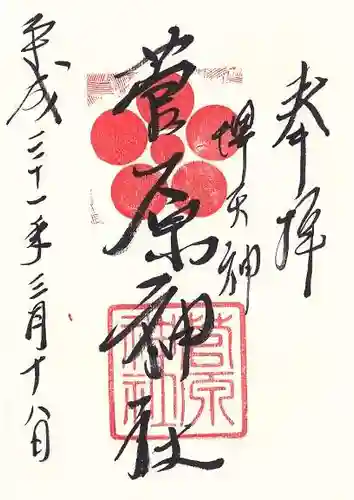 奉拝
堺天神
菅原神社
菅原神社
平成二十一年三月十八日